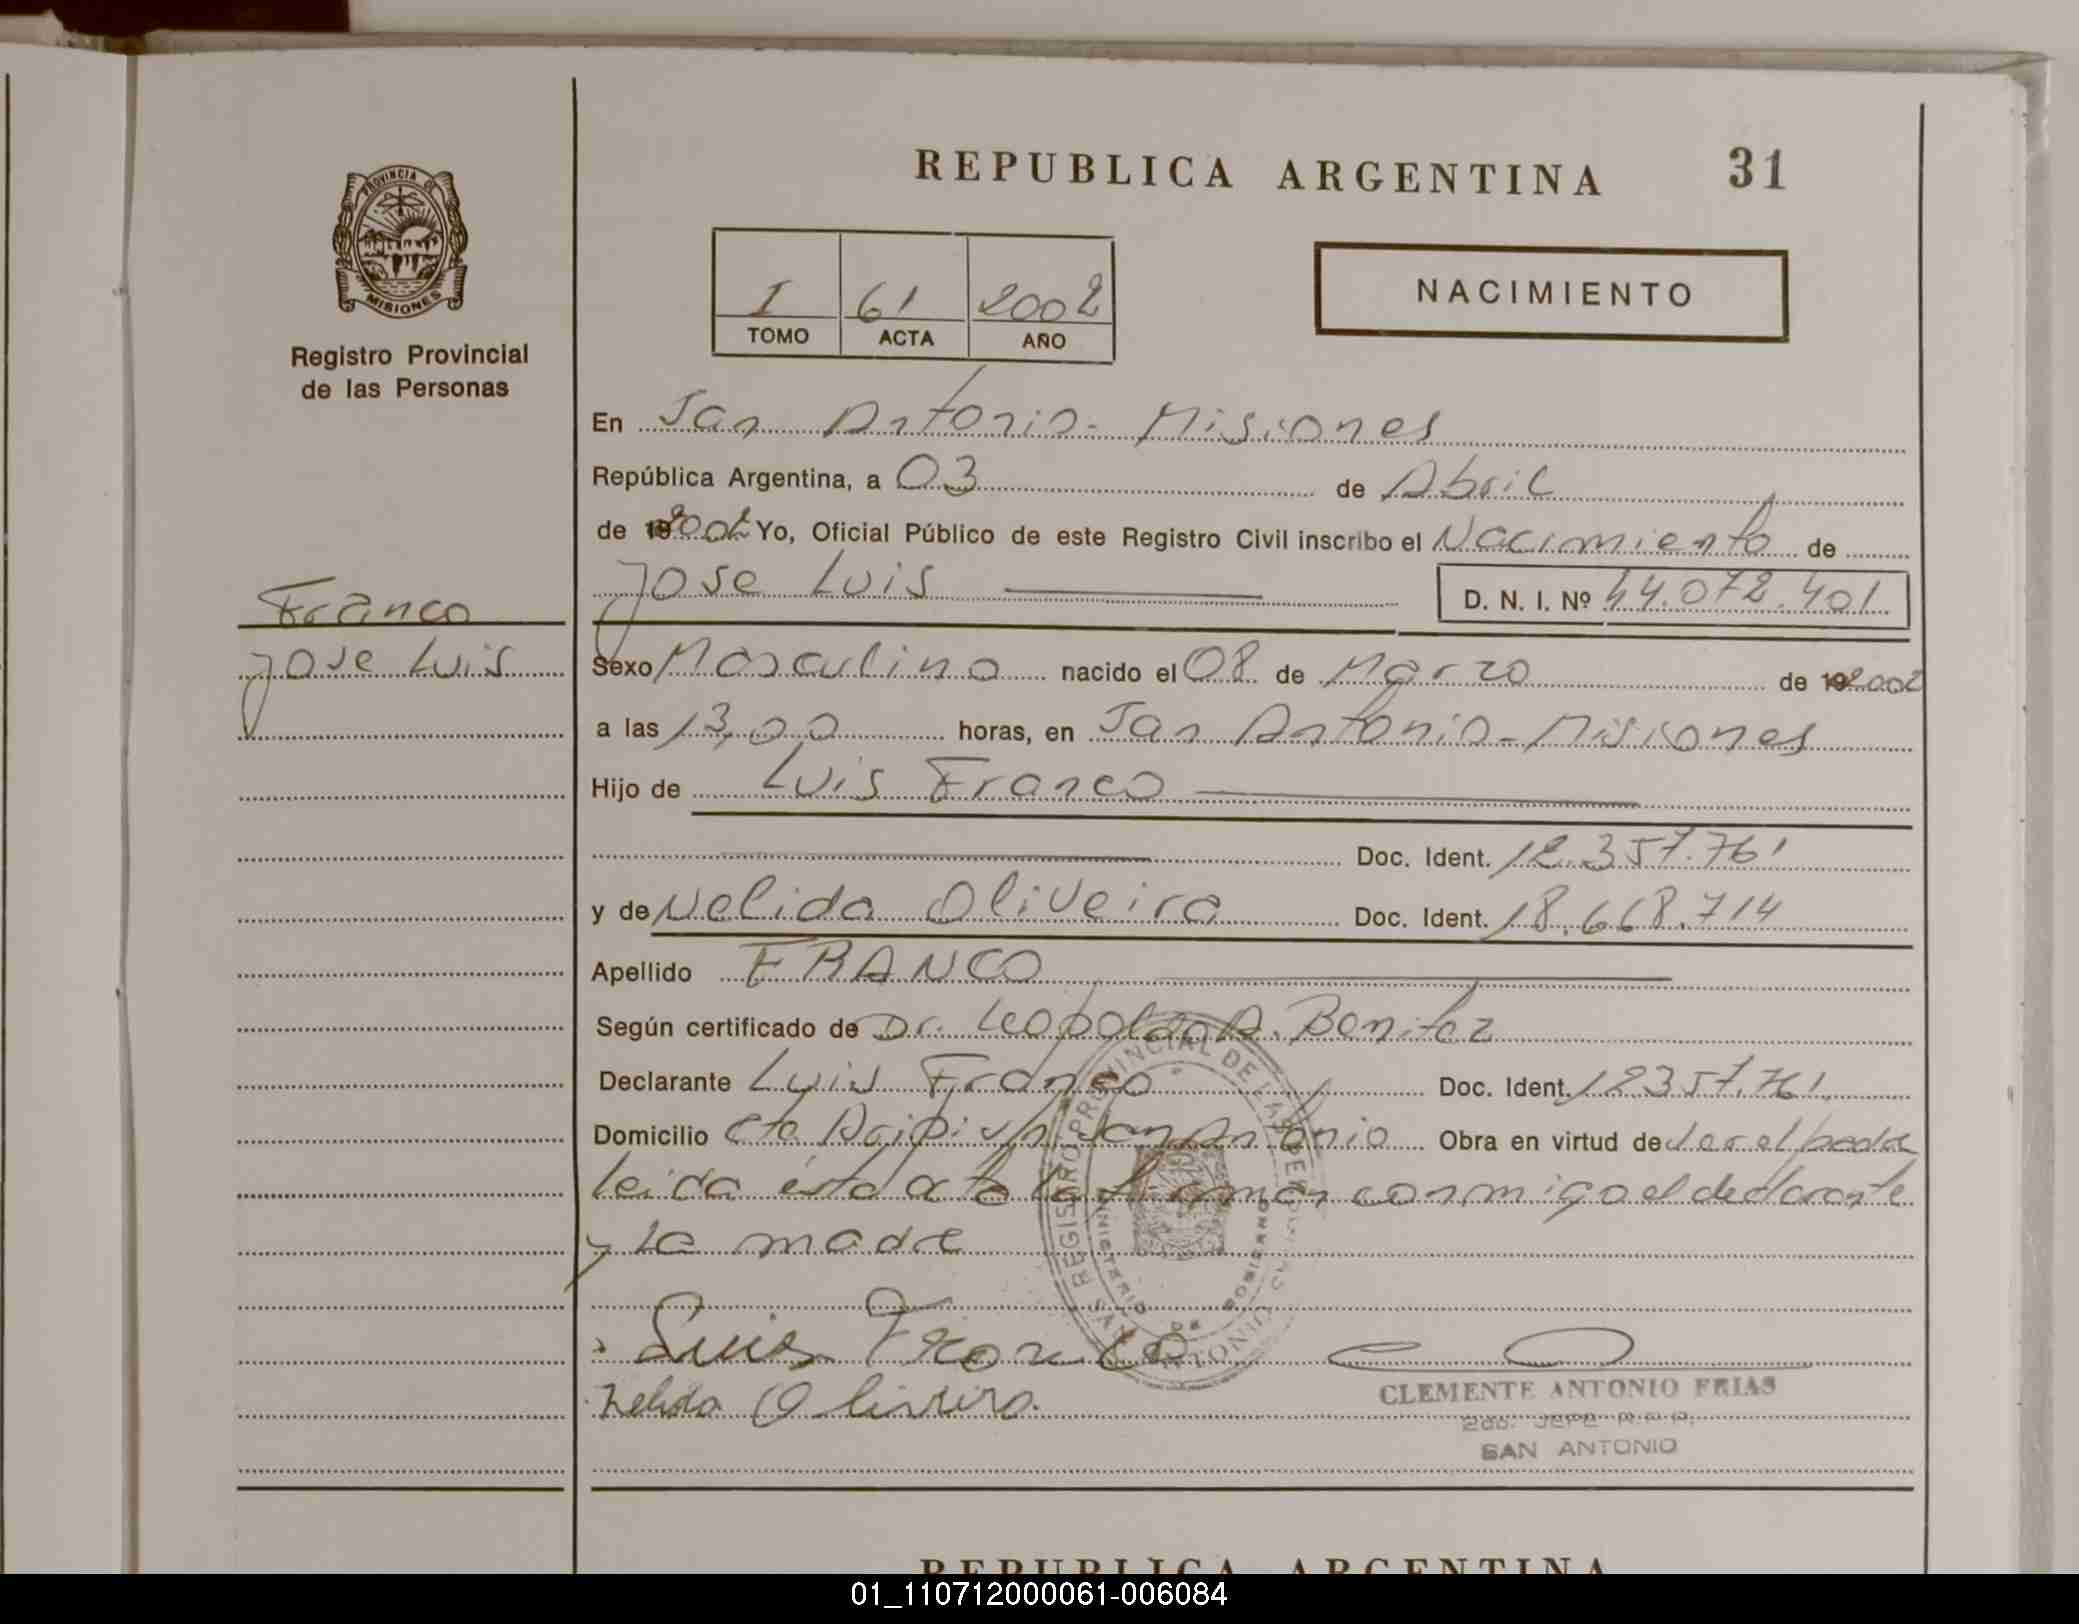 REPUBLICA ARGENTINA 31
PROVINCIA DE
MISIONES
Registro Provincial
de las Personas
I 61 2002
TOMO ACTA AÑO
NACIMIENTO
En San Antonio - Misiones
República Argentina, a 03 de Abril
de 2002 Yo, Oficial Público de este Registro Civil inscribo el Nacimiento de
Jose Luis D. N. I. Nº 44.072.401
Franco
Jose Luis
Sexo Masculino nacido el 08 de Marzo de 2002
a las 13,00 horas, en San Antonio - Misiones
Hijo de Luis Franco
Doc. Ident. 12.357.761
y de Nelida Oliveira Doc. Ident. 18.668.714
Apellido FRANCO
Según certificado de Dr. Leopoldo A. Benitez
Declarante Luis Franco Doc. Ident. 12357.761
Domicilio San Antonio Obra en virtud de ser el padre
leida ésta acta la firman conmigo el declarante
y la madre
Luis Franco
Nelida Oliveira
REGISTRO PROVINCIAL DE LAS PERSONAS
MINISTERIO DE GOBIERNO
CLEMENTE ANTONIO FRIAS
2do. JEFE R.P.P.
SAN ANTONIO
REPUBLICA ARGENTINA
01_110712000061-006084